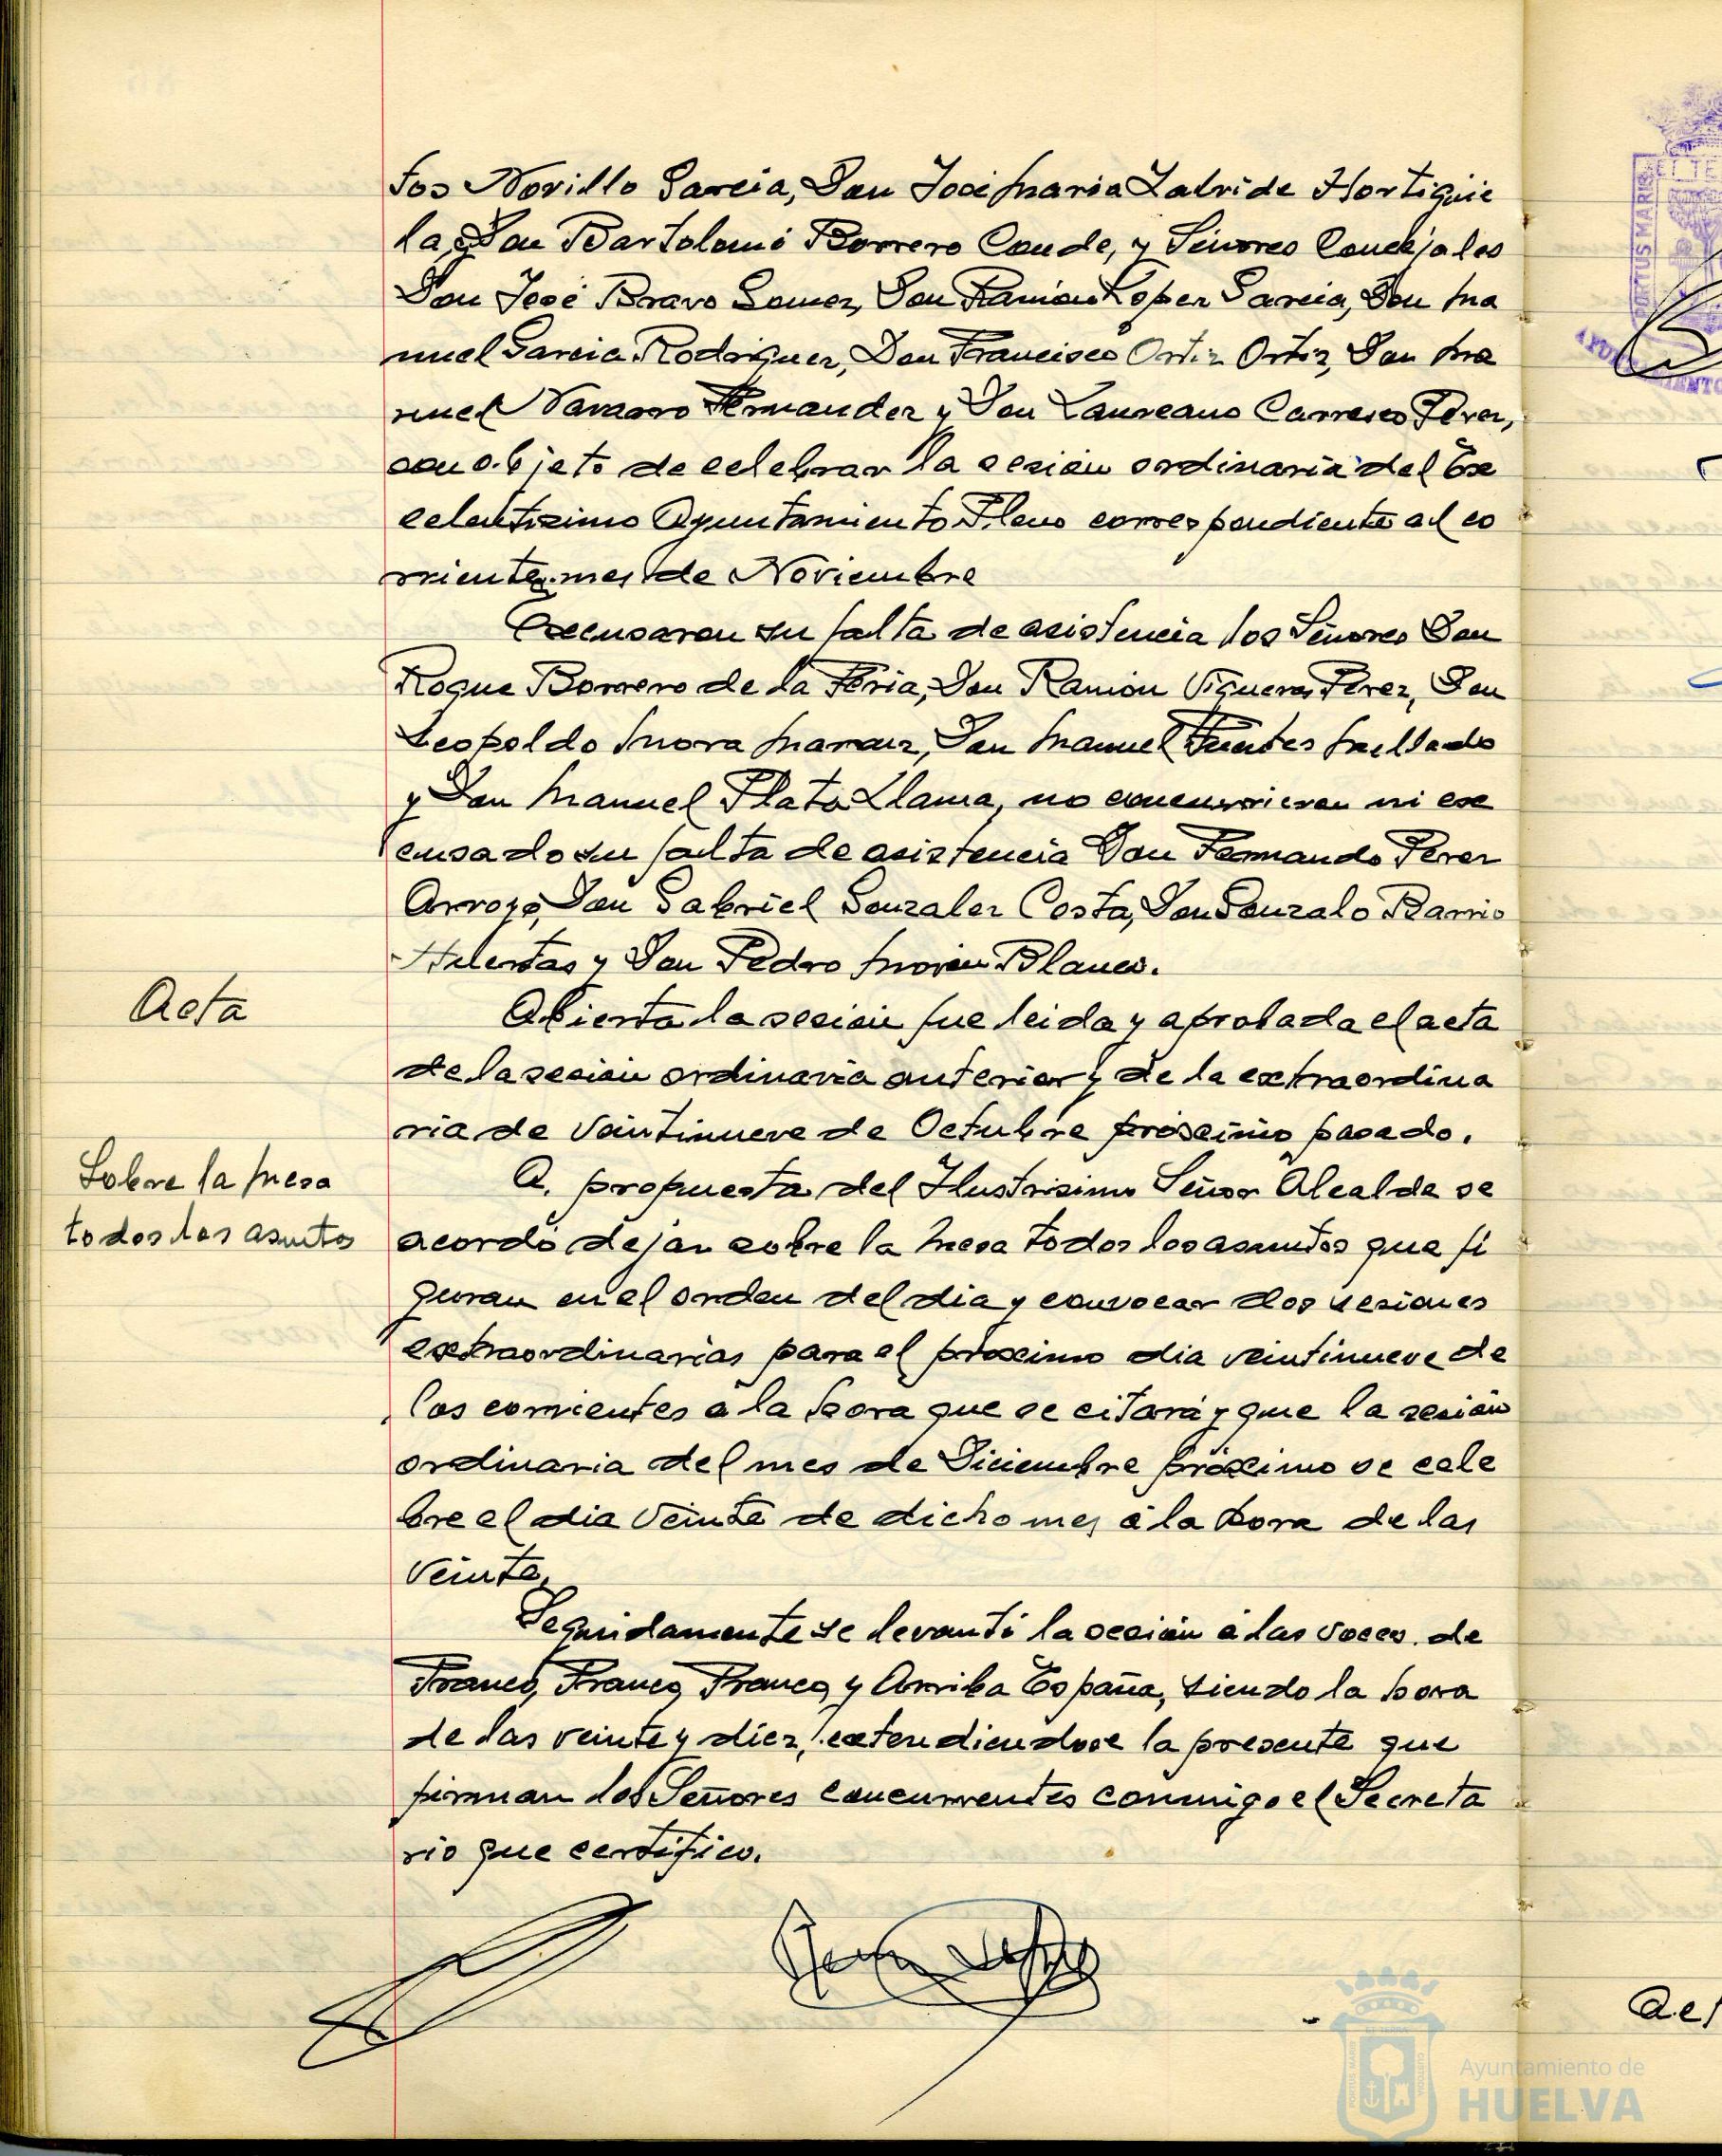 tos Novillo Garcia, Don José Maria Zalvide Hortigüe
la, Don Bartolomé Borrero Conde, y Señores Concejales
Don José Bravo Gomez, Don Ramón Lopez Garcia, Don Ma
nuel Garcia Rodriguez, Don Francisco Ortiz Ortiz, Don Ma
nuel Navarro Fernandez y Don Laureano Carrasco Perez,
con objeto de celebrar la sesión ordinaria del Ex
celentisimo Ayuntamiento Pleno correspondiente al co
rriente mes de Noviembre
Excusaron su falta de asistencia los Señores Don
Roque Borrero de la Feria, Don Ramón Vigueras Perez, Don
Leopoldo Mora, Don Manuel Fuentes
y Don Manuel Plata Llama, no concurrieron ni ex
cusado su falta de asistencia Don Fernando Perez
Arroyo, Don Gabriel Gonzalez Costa, Don Gonzalo Barrio
Huertas y Don Pedro Morón Blanco.
Acta
Abierta la sesión fue leida y aprobada el acta
de la sesión ordinaria anterior y de la extraordina
ria de veintinueve de Octubre próximo pasado.
Sobre la Mesa
todos los asuntos
A propuesta del Ilustrisimo Señor Alcalde se
acordó dejar sobre la Mesa todos los asuntos que fi
guran en el orden del dia y convocar dos sesiones
extraordinarias para el próximo dia veintinueve de
los corrientes a la hora que se citará y que la sesión
ordinaria del mes de Diciembre próximo se cele
bre el dia veinte de dicho mes a la hora de las
veinte.
Seguidamente se levantó la sesión a las voces de
Franco, Franco, Franco, y Arriba España, siendo la hora
de las veinte y diez, extendiendose la presente que
firman los Señores concurrentes conmigo el Secreta
rio que certifico.
PORTUS MARIS
AYUNTAMIENTO
Ayuntamiento de
HUELVA